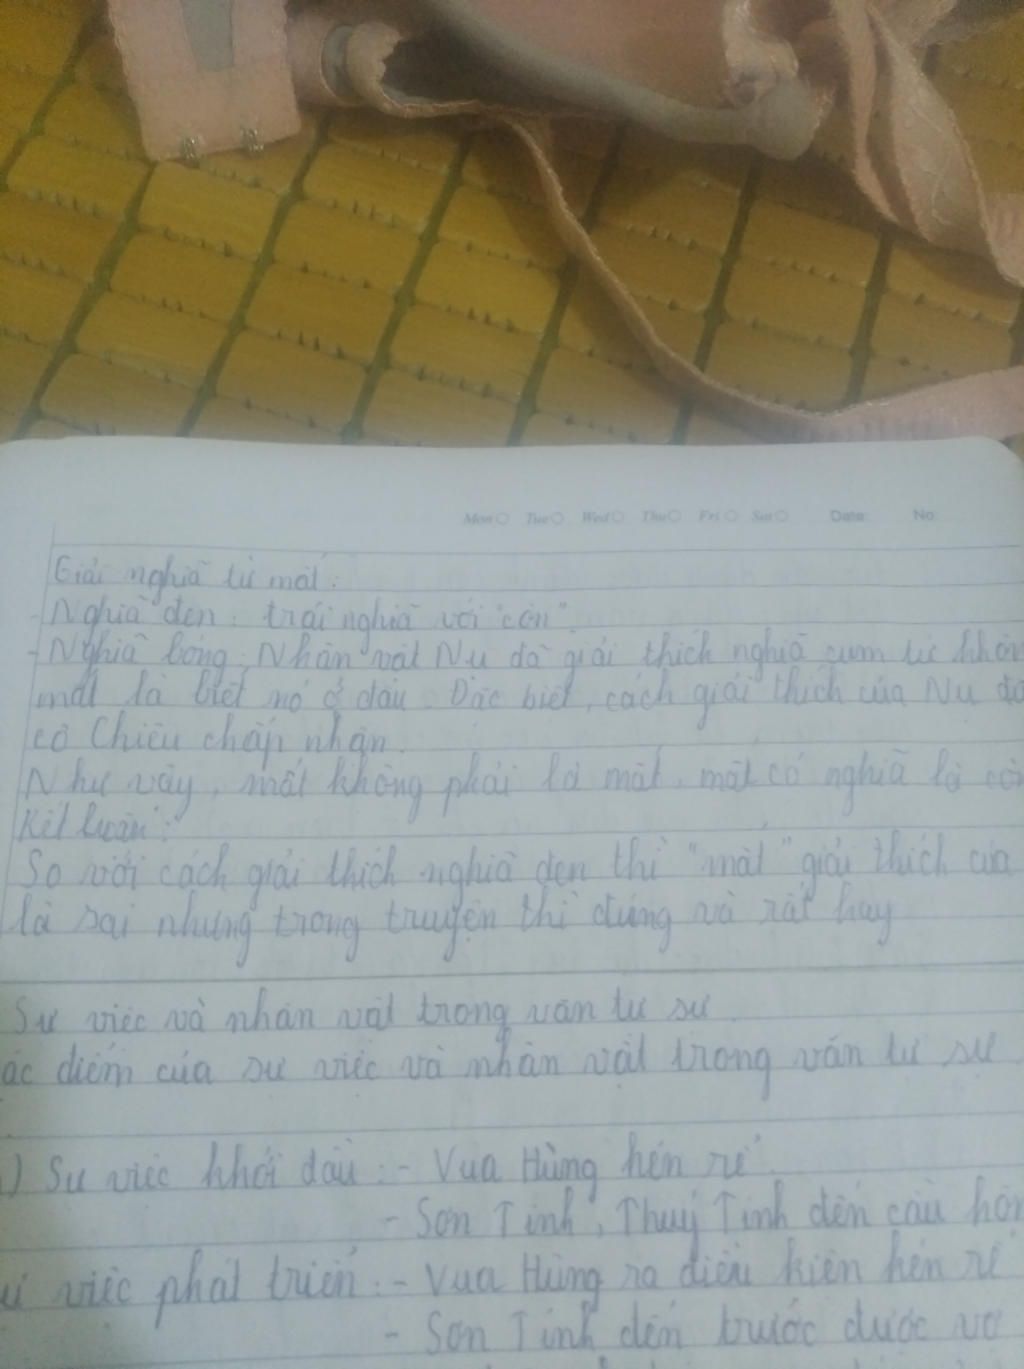 Mon Tue Wed Thu Fri Sat Date: No:
Giải nghĩa từ mất:
- Nghĩa đen: trái nghĩa với "còn"
- Nghĩa bóng: Nhân vật Nụ đã giải thích nghĩa cụm từ khôn
mất là biết nó ở đâu. Đặc biệt, cách giải thích của Nụ đ
cô Chiêu chấp nhận.
Như vậy, mất không phải là mất, mất có nghĩa là cò
Kết luận:
So với cách giải thích nghĩa đen thì "mất" giải thích của
là sai nhưng trong truyện thì đúng và rất hay
Sự việc và nhân vật trong văn tự sự.
ặc điểm của sự việc và nhân vật trong văn tự sự
) Sự việc khởi đầu: - Vua Hùng kén rể.
- Sơn Tinh, Thuỷ Tinh đến cầu hôn
ự việc phát triển: - Vua Hùng ra điều kiện kén rể
- Sơn Tinh đến trước được vợ